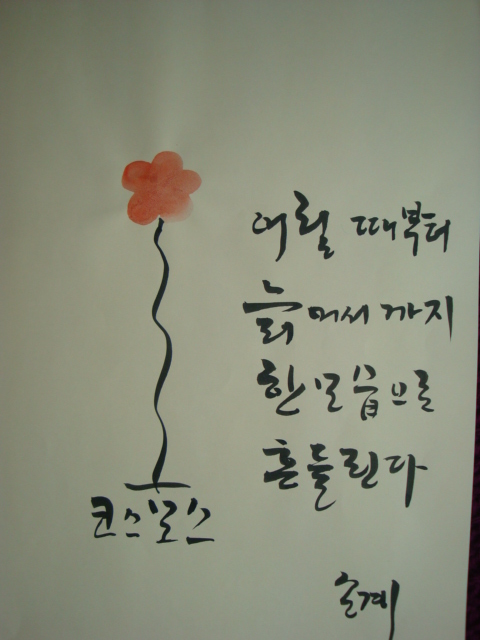 어릴 때부터
늙어서 까지
한 모습으로
흔들린다
코스모스